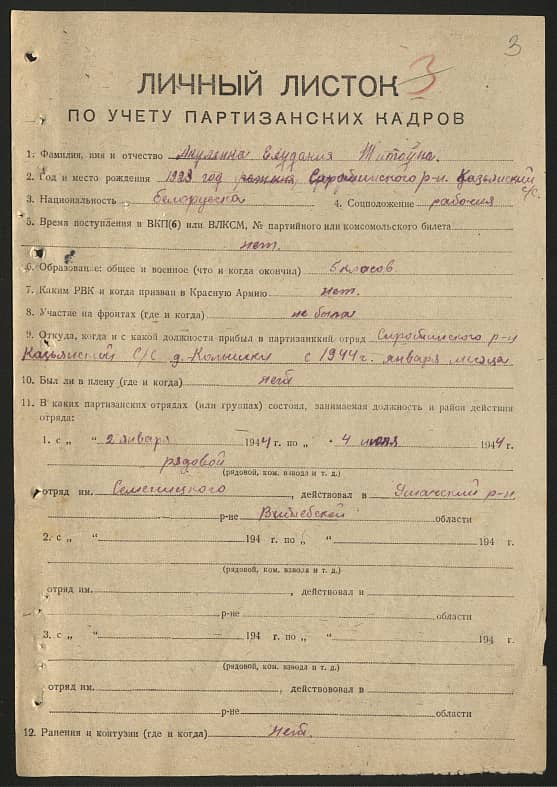 3
ЛИЧНЫЙ ЛИСТОК 3
ПО УЧЕТУ ПАРТИЗАНСКИХ КАДРОВ
1. Фамилия, имя и отчество Титовна.
2. Год и место рождения 1923 год Сиротинского р-н. Казьянский
с/с.
3. Национальность белорусска 4. Соцположение рабочия
5. Время поступления в ВКП(б) или ВЛКСМ, № партийного или комсомольского билета
нет.
6. Образование: общее и военное (что и когда окончил) 5 класов
7. Каким РВК и когда призван в Красную Армию нет.
8. Участие на фронтах (где и когда) не была
9. Откуда, когда и с какой должности прибыл в партизанкий отряд Сиротинского р-н
Казьянский С/С д. Колышки с 1944 г. января месяца
10. Был ли в плену (где и когда) нет
11. В каких партизанских отрядах (или группах) состоял, занимаемая должность и район действия
отряда:
1. с „ “ 2 января 1944 г. по „ “ 4 июля 1944 г.
рядовой
(рядовой, ком. взвода и т. д.)
отряд им. , действовал в Ушачский р-н
р-не Витебской области
2. с „ “ 194 г. по „ “ 194 г.
(рядовой, ком. взвода и т. д.)
отряд им. , действовал и
р-не области
3. с „ “ 194 г. по „ “ 194 г.
(рядовой, ком. взвода и т. д.)
отряд им. , действововал в
р-не области
12. Ранения и контузии (где и когда) нет.